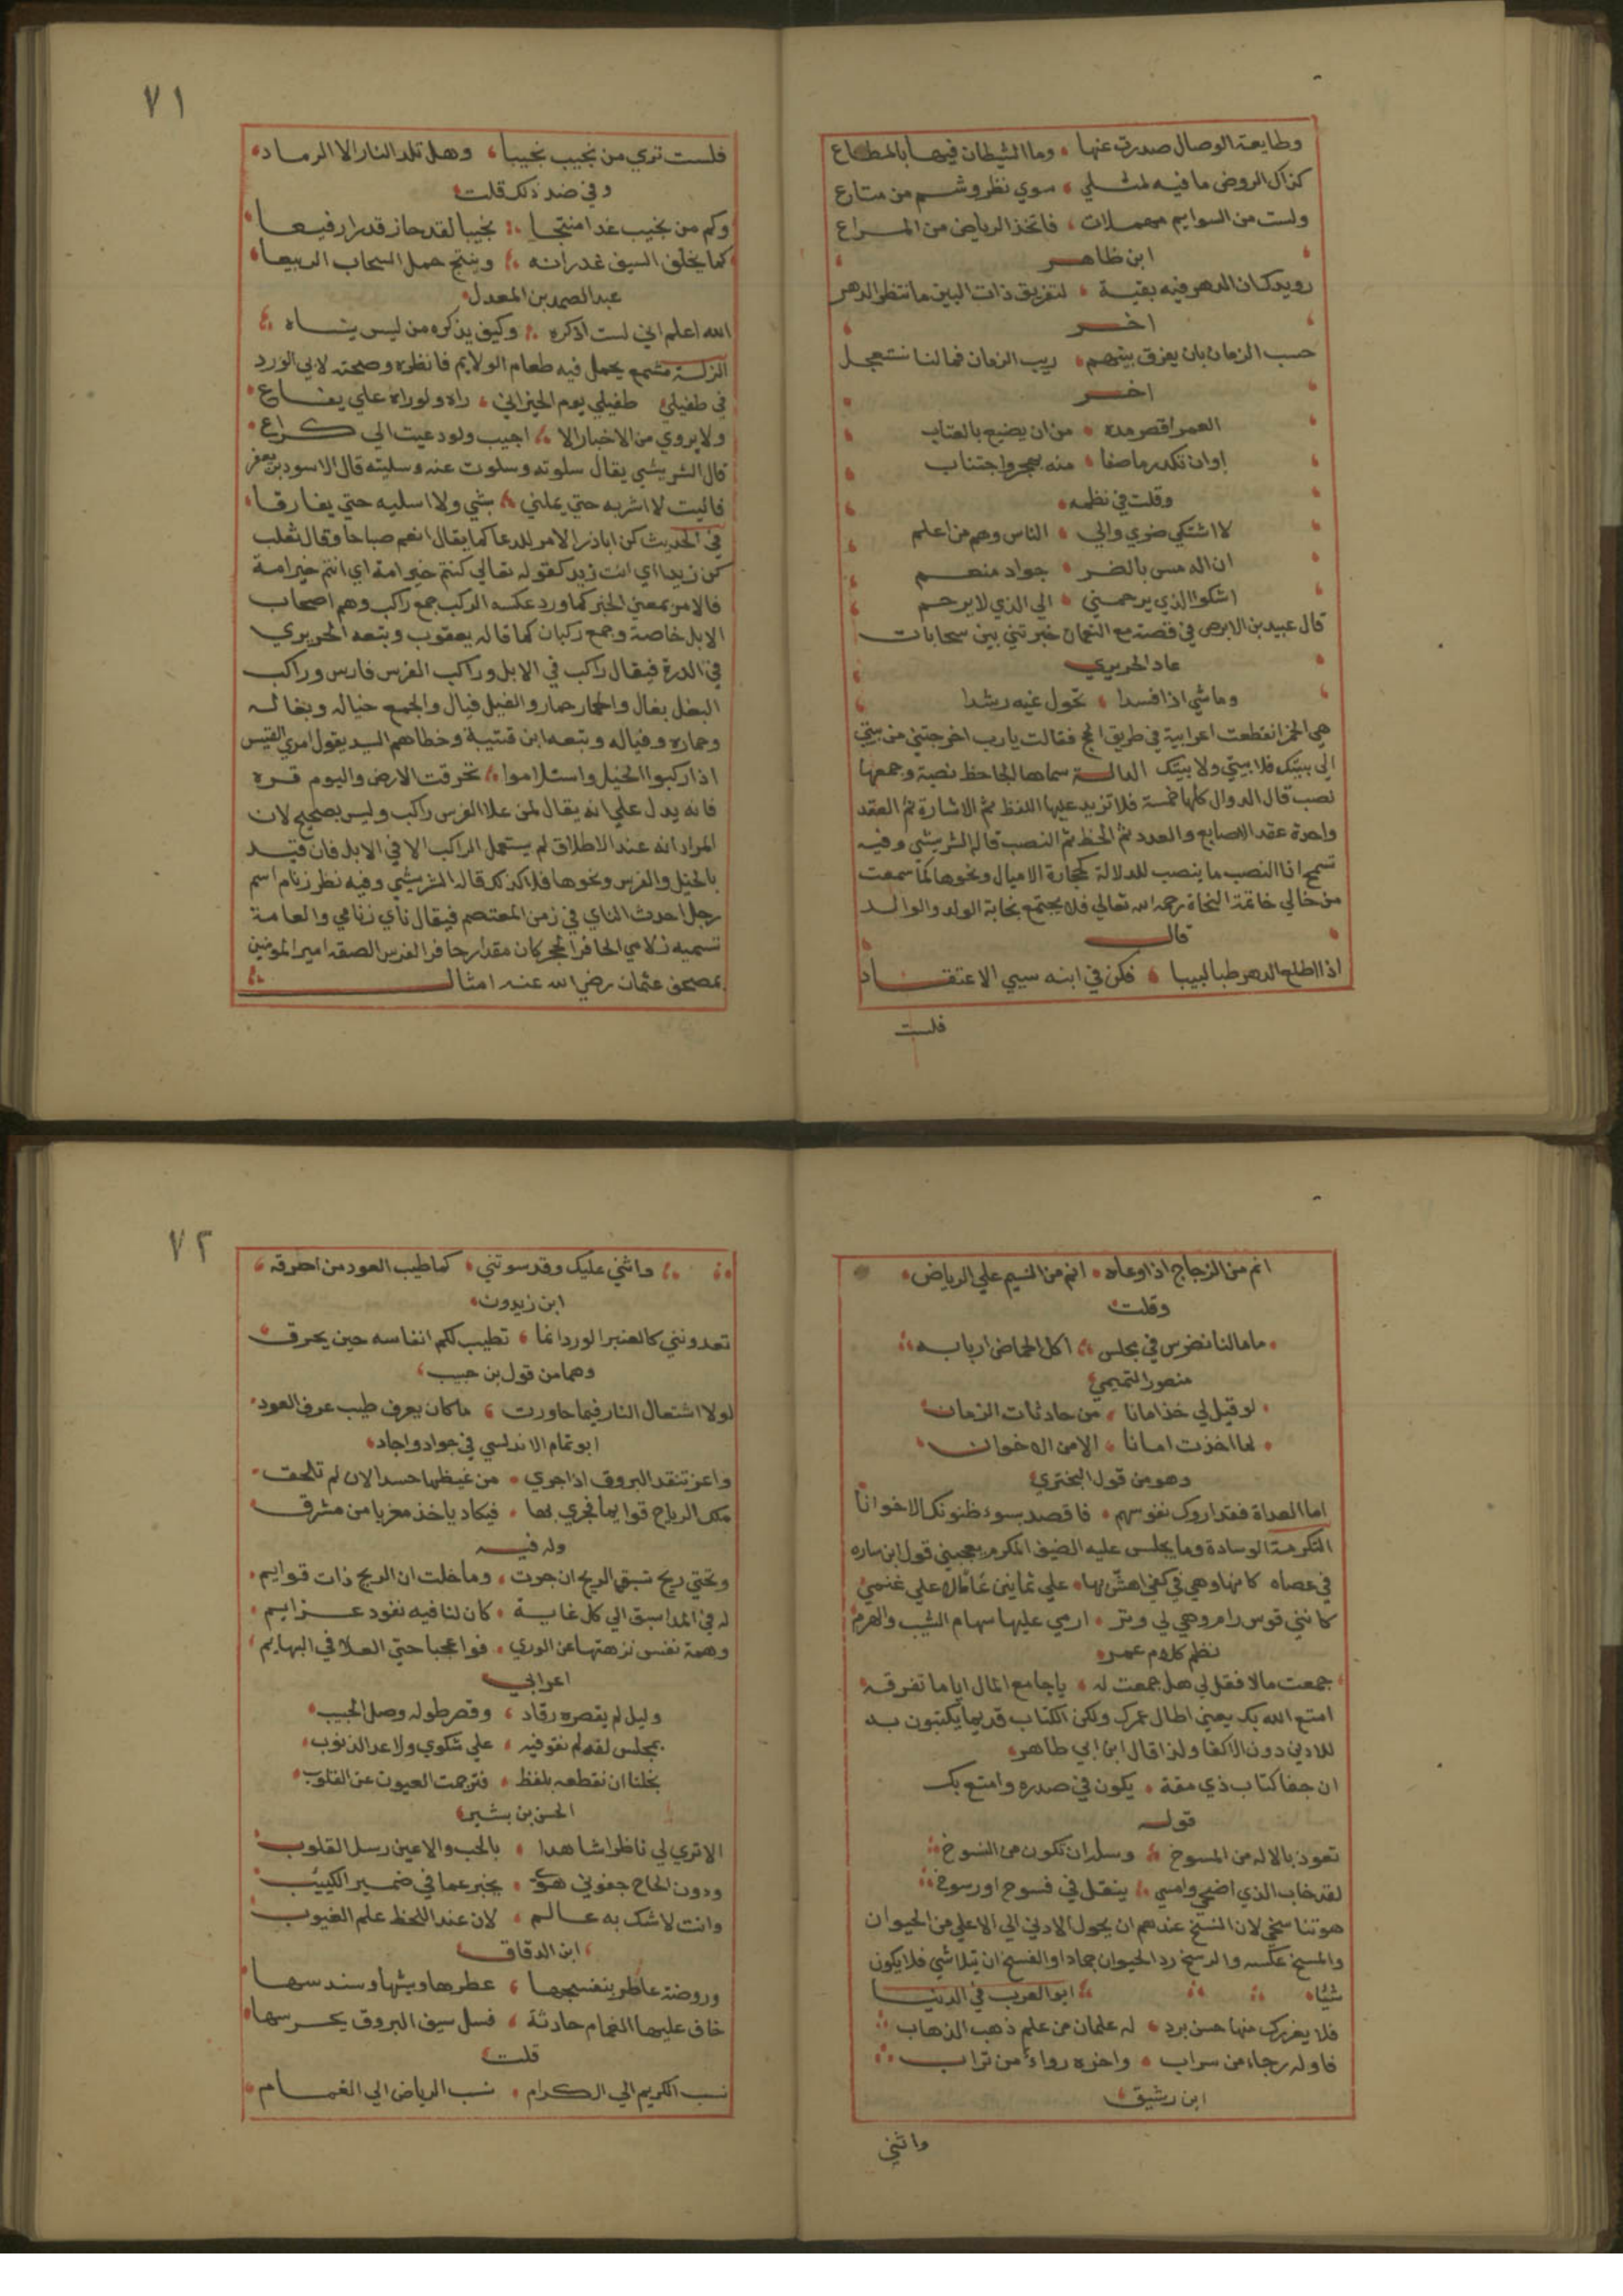 وطايعة الوصال صدرت عنها وما الشيطان فيها بالمطاع
كذاك الروض ما فيه لمثلي سوي نظر وشم من متاع
ولست من السوايم مهملات فاتخذ الرياض من المراع
ابن ظاهر
رويدك ان الدهر فيه بقية لتفريق ذات البين فانتظر الدهر
اخر
حسب الزمان بان يفرق بينهم ريب الزمان فما لنا نستعجل
اخر
العمر اقصر مدة من ان يضيع بالعتاب
اوان تكدر ما صفا منه بهجر واجتناب
وقلت في نظمه
لا اشتكي ضري والي الناس وهم من اعلم
ان الله مس بالضر جواد منعم
اشكوا الذي يرحمني الي الذي لا يرحم
قال عبيد بن الابرص في قصته مع النعمان خيرتني بين سحابات
عاد الحريري
وما شي اذا فسدا تحول غيه رشدا
هي الخمر انقطعت اعرابية في طريق الحج فقالت يا رب اخرجتني من بيتي
الي بيتك فلا بيتي ولا بيتك الدالة سماها الجاحظ نصبة وجمعها
نصب قال الدوال كلها خمسة فلا تزيد عليها اللفظ ثم الاشارة ثم العقد
واحدة عقد الاصابع والعدد ثم الخط ثم النصب قال الشريشي وفيه
تسمح انا النصب ما ينصب للدلالة كحجارة الاميال ونحوها كما سمعت
من خالي خاتمة النحاة رحمه الله تعالي فلا يجتمع نجابة الولد والوالد
قال
اذا اطلع الدهر طبا لبيبا فكن في ابنه سيي الاعتقاد
فلست
٧١
فلست تري من نجيب نجيبا وهل تلد النار الا الرماد
وفي ضد ذلك قلت
وكم من نجيب غدا منتجا نجيبا لقد حاز قدرا رفيعا
كما يخلق السيف غدرانه وينتج حمل السحاب الربيعا
عبد الصمد بن المعدل
الله اعلم اني لست اذكره وكيف يذكره من ليس ينساه
الزلة مشمع يحمل فيه طعام الولايم فانظره وصحته لابي الورد
في طفيلي طفيلي يوم الخبز اني راه ولو راه علي يفاع
ولا يروي من الاخبار الا اجيب ولو دعيت الي كراع
قال الشريشي يقال سلوته وسلوت عنه وسليته قال الاسود بن يعفر
فاليت لا اشربه حتي يملني بشي ولا اسليه حتي يفارقا
في الحديث كن ابا ذر الامر للدعا كما يقال انعم صباحا وقال ثعلب
كن زيدا اي انت زيد كقوله تعالي كنتم خير امة اي انتم خير امة
فالامر بمعني الخبر كما ورد عكسه الركب جمع راكب وهم اصحاب
الابل خاصة وجمع ركبان كما قاله يعقوب وتبعه الحريري
في الدرة فيقال راكب في الابل وراكب الفرس فارس وراكب
البغل بغال والحمار حمار والفيل فيال والجمع خياله وبغاله
وحماره وفياله وتبعه ابن قتيبة وخطاهم السيد بقول امري القيس
اذا ركبوا الخيل واستلاموا تحرقت الارض واليوم قره
فانه يدل علي انه يقال لمن علا الفرس راكب وليس بصحيح لان
المراد انه عند الاطلاق لم يستعمل الراكب الا في الابل فان قيد
بالخيل والفرس ونحوها فلا كذلك قاله الشريشي وفيه نظر زنام اسم
رجل احدث الناي في زمن المعتصم فيقال ناي زنامي والعامة
تسميه زلامي الحافر الحجر كان مقدار حافر الفرس الصقه امير المومنين
بمصحف عثمان رضي الله عنه امثال
انم من الزجاج اذا وعاه انم من النسيم علي الرياض
وقلت
ما مالنا نضرس في مجلس اكل الحماض اربابه
منصور التميمي
لو قيل لي خذ امانا من حادثات الزمان
لما اخذت امانا الا من الاخوان
وهو من قول البختري
اما العداة فقد اروك نفوسهم فاقصد بسوء ظنونك الاخوانا
التكرمة الوسادة وما يجلس عليه الضيف المكرم يعجبني قول ابن ساره
في عصاه كانها وهي في كفي اهش بها علي ثمانين عاما لا علي غنمي
كانني قوس رام وهي لي وتر ارمي عليها سهام الشيب والهرم
نظم كلام عمر
جمعت مالا فقل لي هل جمعت له يا جامع المال اياما تفرقه
امتع الله بك يعني اطال عمرك ولكن الكتاب قديما يكتبون به
للادني دون الاكفا ولذا قال ابن ابي طاهر
ان جفا كتاب ذي مقة يكون في صدره وامتع بك
قوله
تعوذ بالاله من المسوخ وسل ان تكون من النسوخ
لقد خاب الذي اضحي وامسي ينقل في فسوخ او رسوخ
هو تناسخي لان النسخ عندهم ان يحول الادني الي الاعلي من الحيوان
والمسخ عكسه والرسخ رد الحيوان جمادا والفسخ ان يتلاشي فلا يكون
شيئا ابو العرب في الدنيا
فلا يغررك منها حسن برد له علمان من علم ذهب الذهاب
فاوله رجاء من سراب واخره رداء من تراب
ابن رشيق
واثني
٧٢
واثني عليك وقد سوتني كما طيب العود من احرقه
ابن زيدون
تعدونني كالعنبر الورد انما تطيب لكم انفاسه حين يحرق
وهما من قول بن حبيب
لولا اشتعال النار فيما جاورت ما كان يعرف طيب عرف العود
ابو تمام الاندلسي في جواد واجاد
واغر تنقد البروق اذا جري من غيظها حسدا لان لم تلحق
ملك الرياح قوايما فجري بها فيكاد ياخذ مغربا من مشرق
وله فيه
وتحتي ريح تسبق الريح ان جرت وما خلت ان الريح ذات قوايم
له في المدا سبق الي كل غاية كان لنا فيه نفوذ عزايم
وهمة نفس نزهتها عن الوري فوا عجبا حتي العلا في البهايم
اعرابي
وليل لم يقصره رقاد وقصر طوله وصل الحبيب
بمجلس لذة لم نقو فيه علي شكوي ولا عد الذنوب
بخلنا ان نقطعه بلفظ فترجمت العيون عن القلوب
الحسن بن بشير
الا تري لي ناظرا شاهدا بالحب والاعين رسل القلوب
ودون الحاح جفوني هوي يخبر عما في ضمير الكييب
وانت لا شك به عالم لان عند اللحظ علم الغيوب
ابن الدقاق
وروضة عاطر بنفسجها عطرها وشيها وسندسها
خاف عليها الغمام حادثة فسل سيف البروق يحرسها
قلت
نسب الكريم الي الكرام نسب الرياض الي الغمام